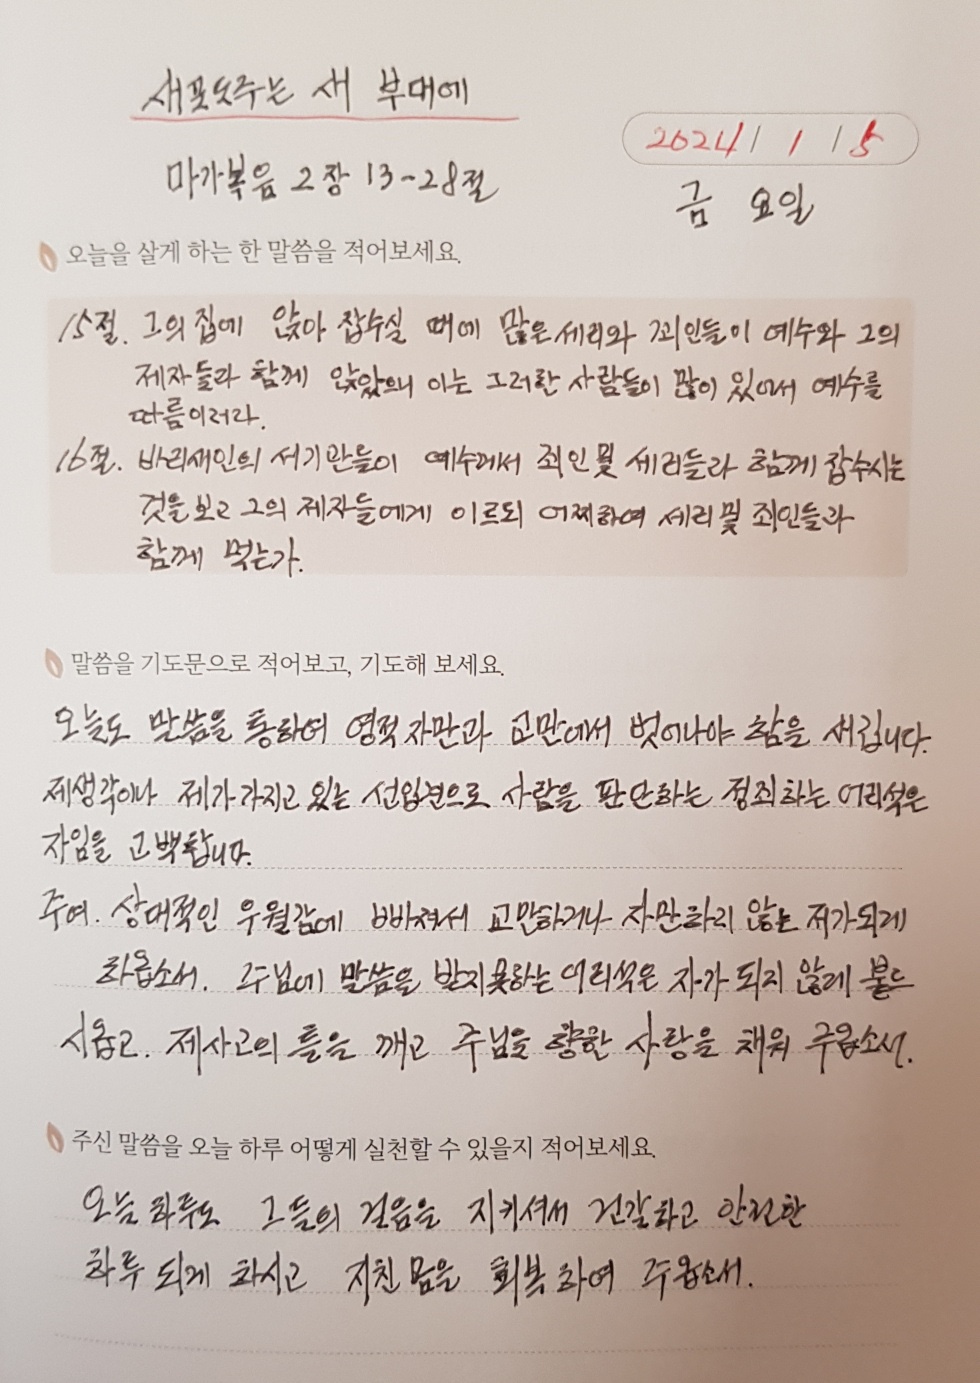 새포도주는 새 부대에
2024 / 1 / 5
마가복음 2장 13-28절
금 요일
오늘을 살게 하는 한 말씀을 적어보세요.
15절. 그의 집에 앉아 잡수실 때에 많은 세리와 죄인들이 예수와 그의
제자들과 함께 앉았으니 이는 그러한 사람들이 많이 있어서 예수를
따름이러라.
16절. 바리새인의 서기관들이 예수께서 죄인 및 세리들과 함께 잡수시는
것을 보고 그의 제자들에게 이르되 어찌하여 세리 및 죄인들과
함께 먹는가.
말씀을 기도문으로 적어보고, 기도해 보세요.
오늘도 말씀을 통하여 영적 자만과 교만에서 벗어나야 함을 새깁니다.
제생각이나 제가 가지고 있는 선입견으로 사람을 판단하는 정죄하는 어리석은
자임을 고백합니다.
주여. 상대적인 우월감에 빠져서 교만하거나 자만하지 않는 저가되게
하옵소서. 주님에 말씀을 받지못하는 어리석은 자가 되지 않게 붙드
시옵고. 제사고의 틀을 깨고 주님을 향한 사랑을 채워 주옵소서.
주신 말씀을 오늘 하루 어떻게 실천할 수 있을지 적어보세요.
오늘 하루도 그들의 걸음을 지키셔서 건강하고 안전한
하루 되게 하시고 지친 몸을 회복하여 주옵소서.